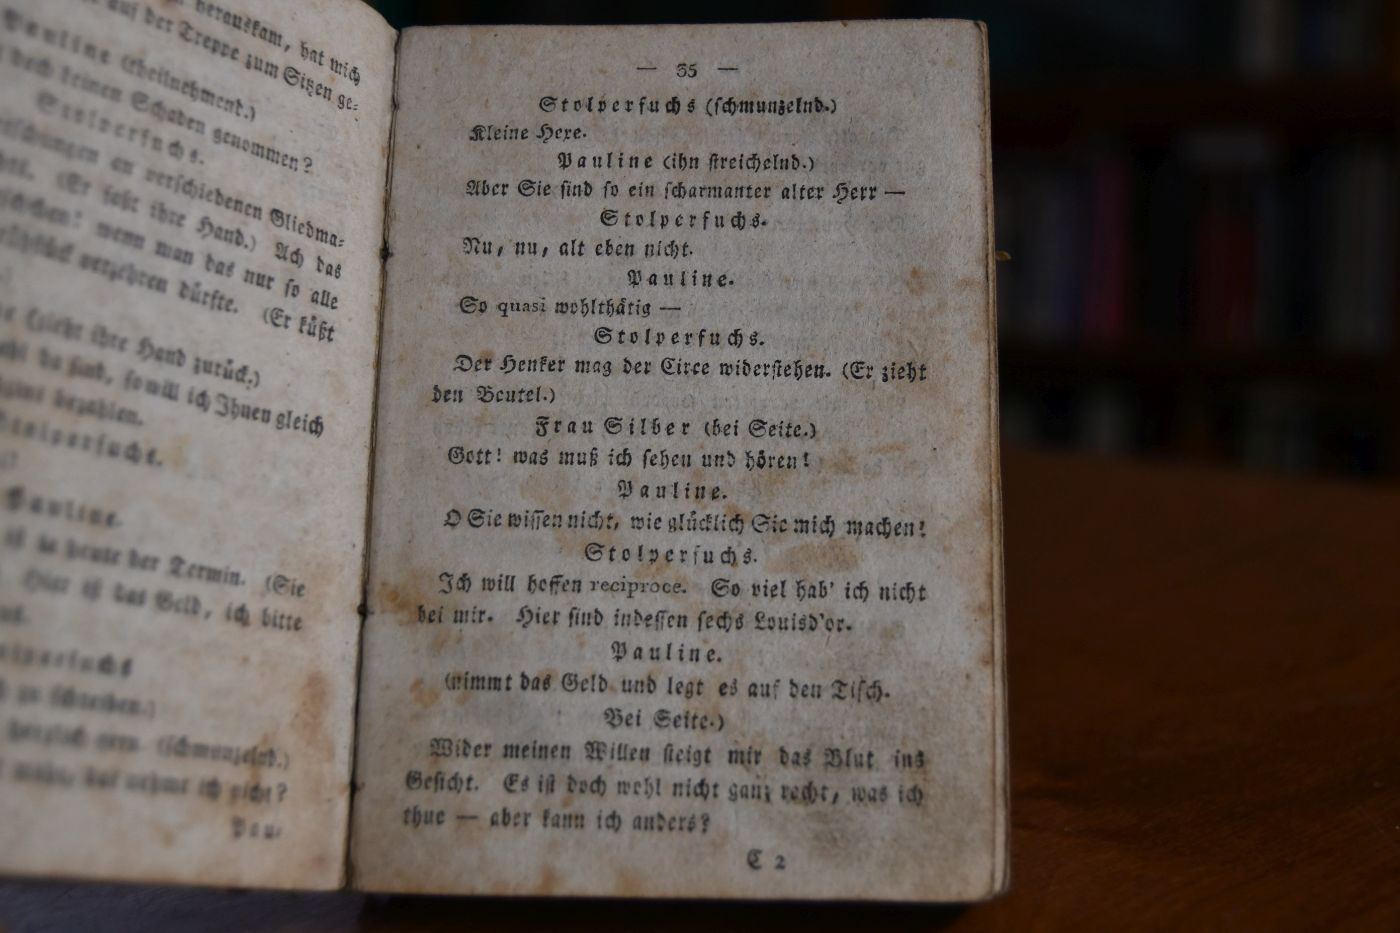 herauskam, hat mich
auf der Treppe zum Sitzen ge-
Pauline (theilnehmend.)
doch keinen Schaden genommen?
Stolperfuchs.
an verschiedenen Gliedma-
(Er sieht ihre Hand.) Ach das
wenn man das nur so alle
verzehren dürfte. (Er küßt
(zieht ihre Hand zurück.)
da sind, so will ich Ihnen gleich
bezahlen.
Stolperfuchs.
Pauline.
ist ja heute der Termin. (Sie
Hier ist das Geld, ich bitte
Stolperfuchs
zu schreiben.)
herzlich gern. (schmunzelnd.)
ich nicht?
Pau-
— 35 —
Stolperfuchs (schmunzelnd.)
Kleine Hexe.
Pauline (ihn streichelnd.)
Aber Sie sind so ein scharmanter alter Herr —
Stolperfuchs.
Nu, nu, alt eben nicht.
Pauline.
So quasi wohlthätig —
Stolperfuchs.
Der Henker mag der Circe widerstehen. (Er zieht
den Beutel.)
Frau Silber (bei Seite.)
Gott! was muß ich sehen und hören!
Pauline.
O Sie wissen nicht, wie glücklich Sie mich machen!
Stolperfuchs.
Ich will hoffen reciproce. So viel hab' ich nicht
bei mir. Hier sind indessen sechs Louisd'or.
Pauline.
(nimmt das Geld und legt es auf den Tisch.
Bei Seite.)
Wider meinen Willen steigt mir das Blut ins
Gesicht. Es ist doch wohl nicht ganz recht, was ich
thue — aber kann ich anders?
C 2